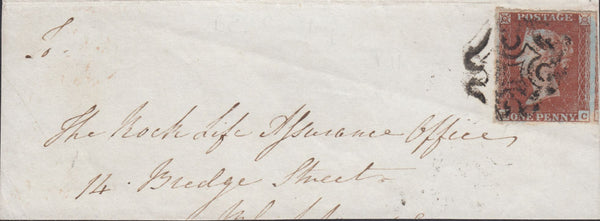 POSTAGE
ONE PENNY
C
To.
The Rock Life Assurance Office,
14. Bridge Street